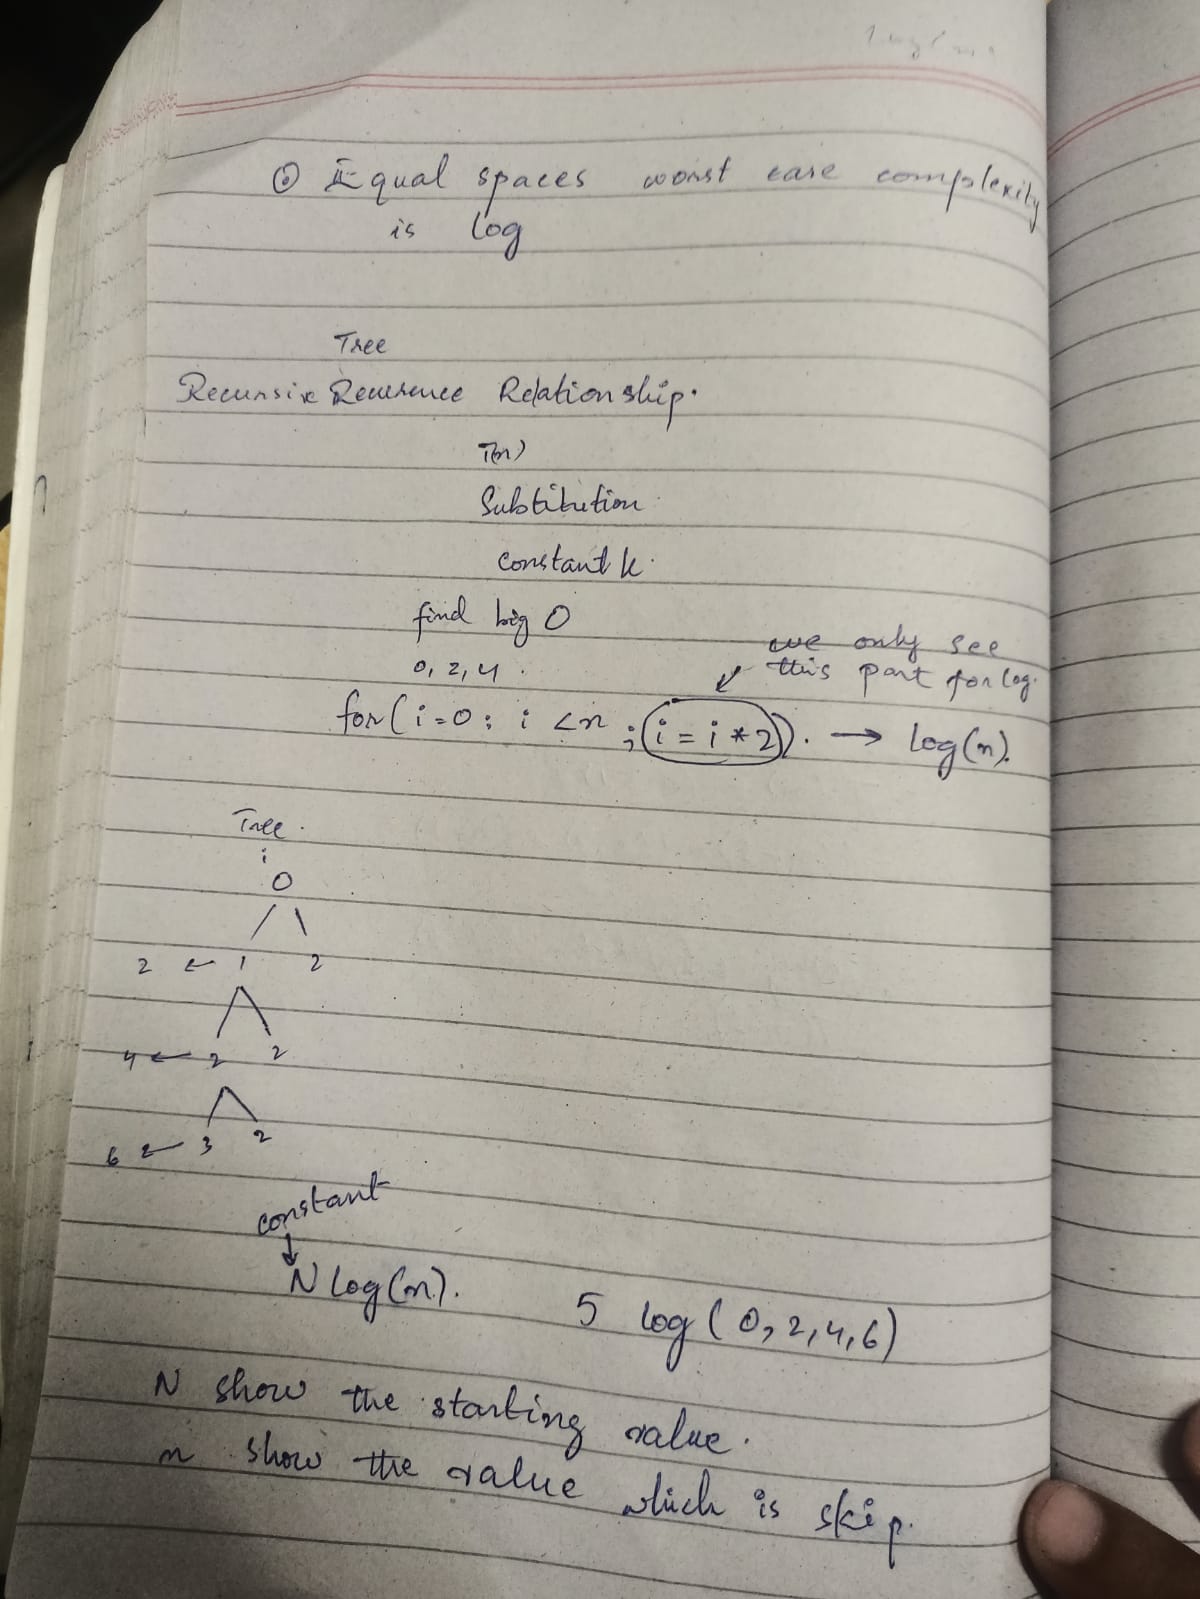 Equal spaces worst case complexity
is log
Tree
Recursive Recurrence Relationship.
T(n)
Substitution
constant k.
find big O
we only see
0, 2, 4.
this part for log.
for( i=0; i <n ; (i = i * 2)). → log(n).
Tree.
i
0
2 ← 1 2
4 ← 2 2
6 ← 3 2
constant
↓
N log(n).
5 log(0, 2, 4, 6)
N show the starting value.
n show the value which is skip.